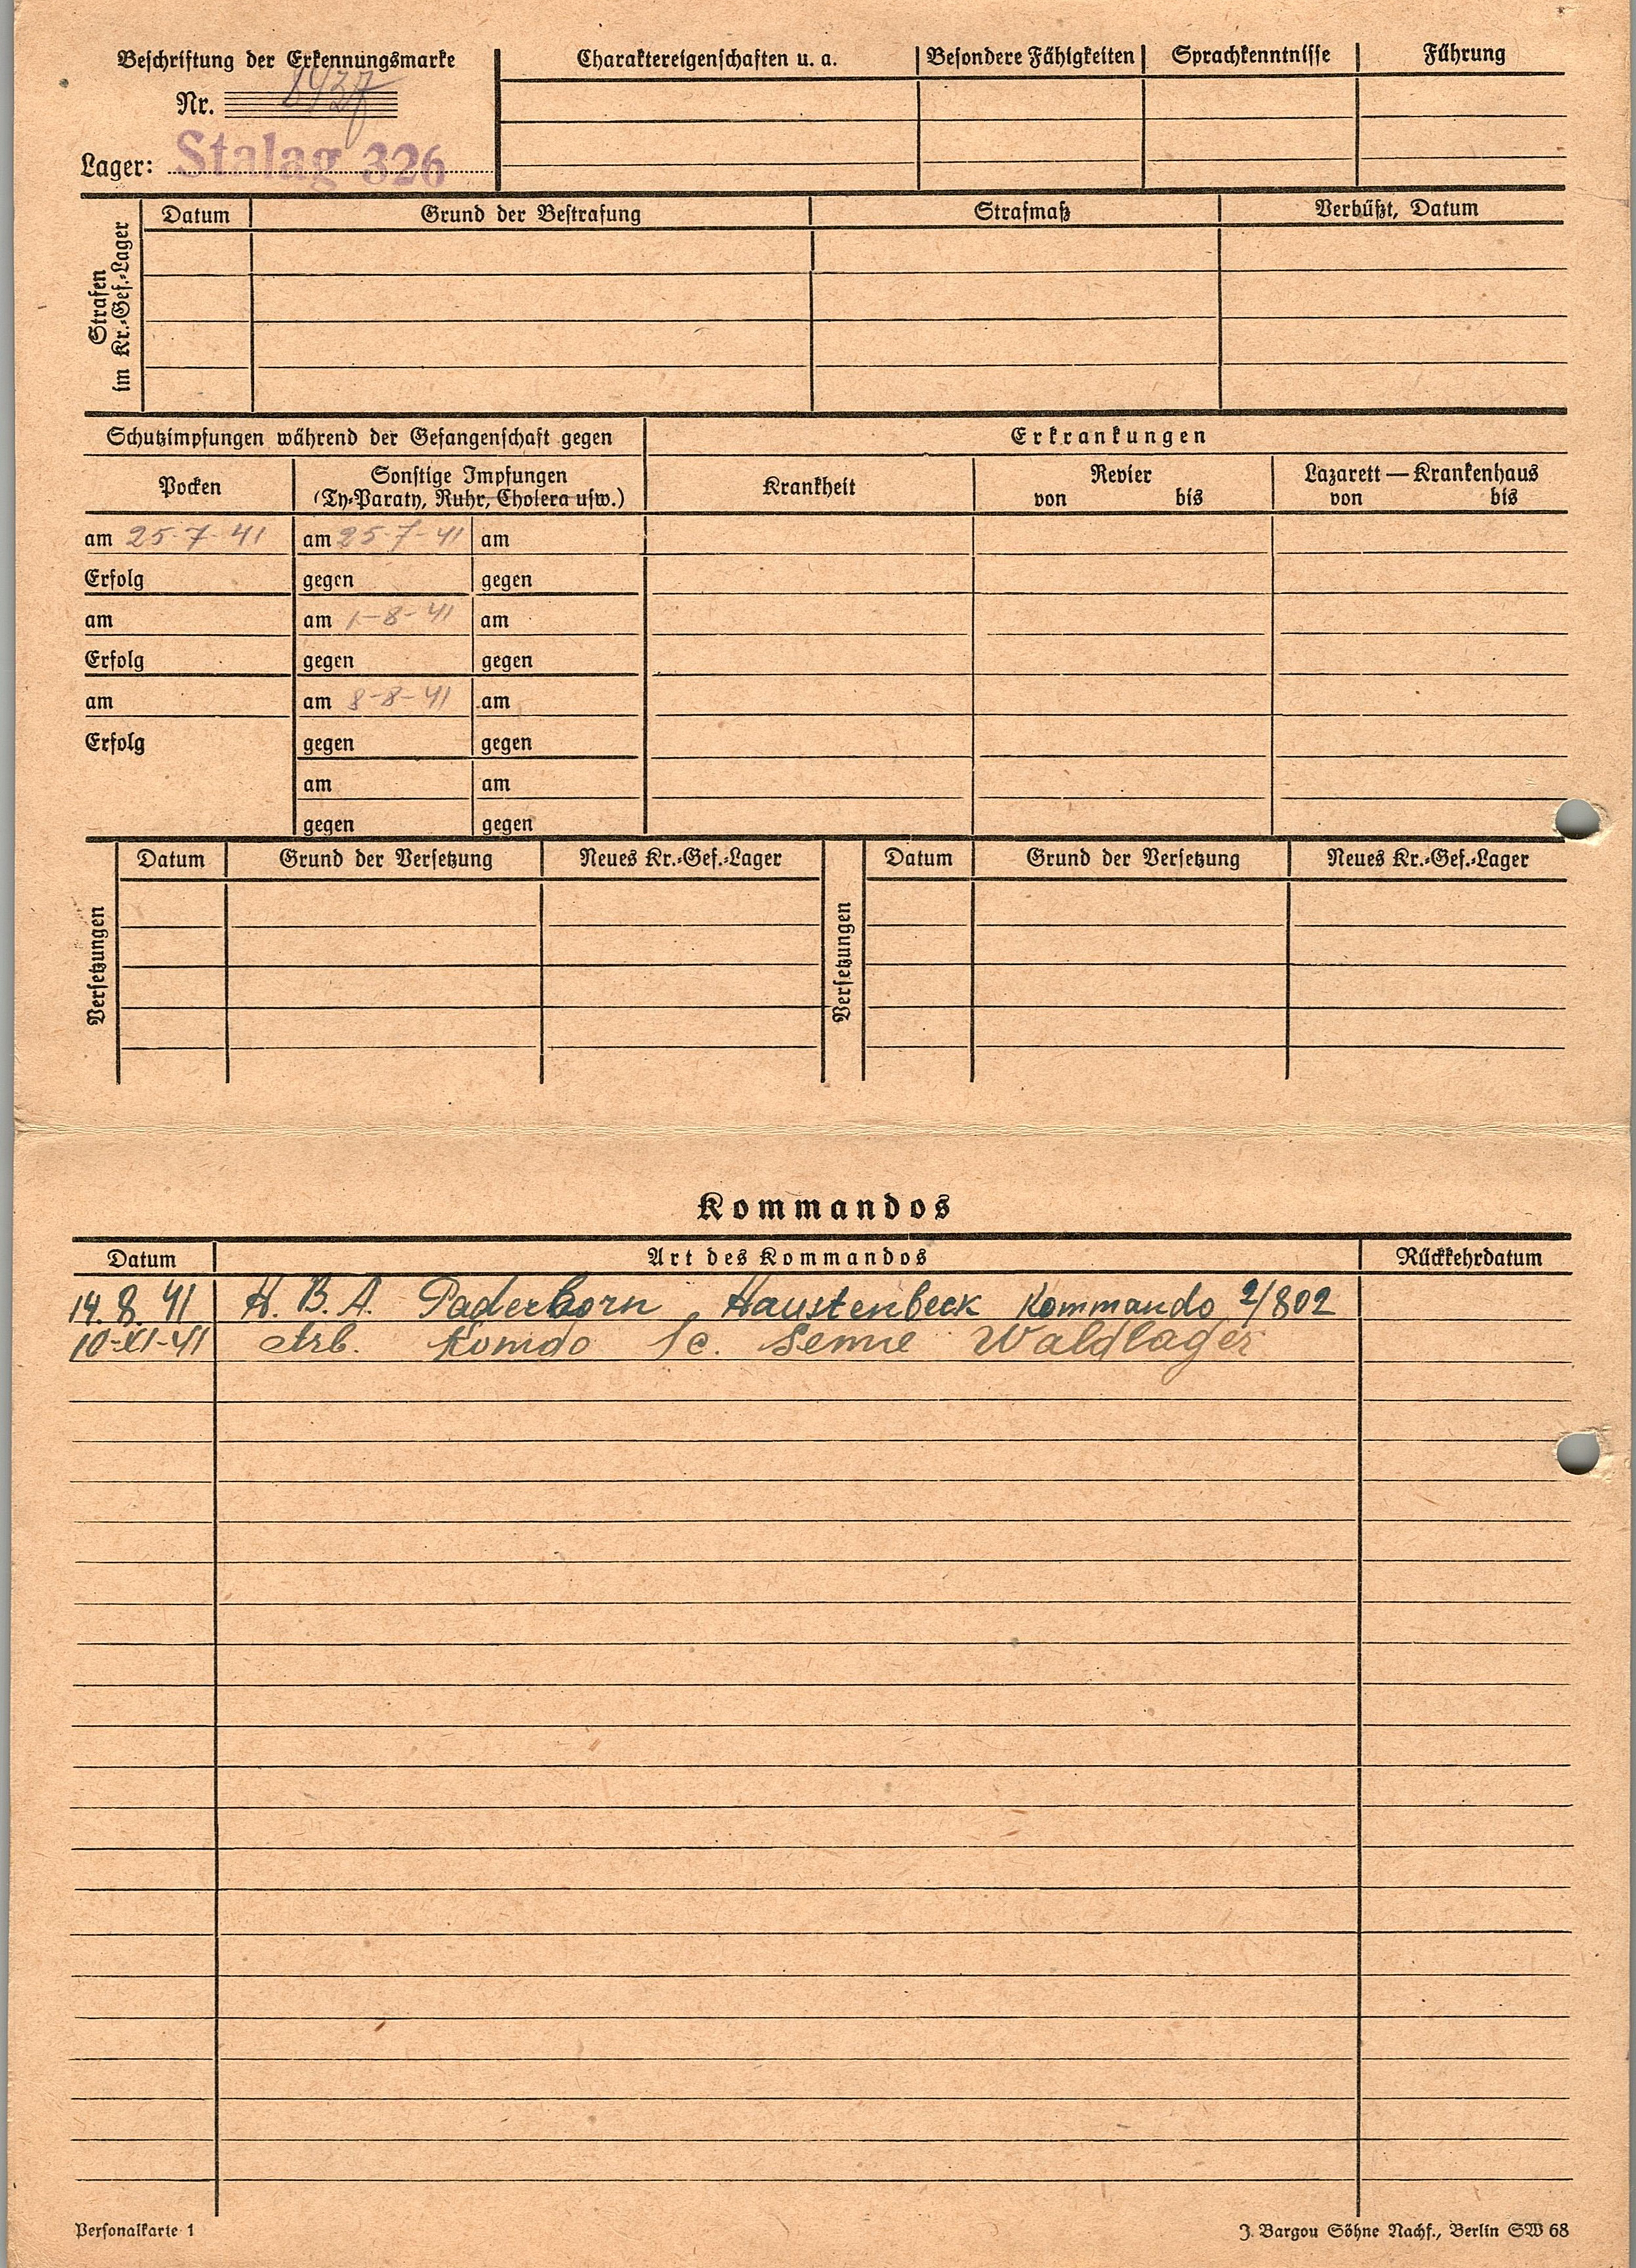 Beschriftung der Erkennungsmarke
Nr.
Lager: Stalag 326
Charaktereigenschaften u. a. Besondere Fähigkeiten Sprachkenntnisse Führung
Strafen im Kr.-Gef.-Lager
Datum Grund der Bestrafung Strafmaß Verbüßt, Datum
Schutzimpfungen während der Gefangenschaft gegen
Erkrankungen
Pocken
Sonstige Impfungen
(Ty-Paraty, Ruhr, Cholera usw.)
Krankheit
Revier
von bis
Lazarett — Krankenhaus
von bis
am 25-7-41 am 25-7-41 am
Erfolg gegen gegen
am am 1-8-41 am
Erfolg gegen gegen
am am 8-8-41 am
Erfolg gegen gegen
am am
gegen gegen
Versetzungen
Datum Grund der Versetzung Neues Kr.-Gef.-Lager
Versetzungen
Datum Grund der Versetzung Neues Kr.-Gef.-Lager
Kommandos
Datum Art des Kommandos Rückkehrdatum
14.8.41 H. B. A. Paderborn, Haustenbeck Kommando 2/802
10-XI-41 Arb. Senne Waldlager
Personalkarte 1
J. Bargou Söhne Nachf., Berlin SW 68